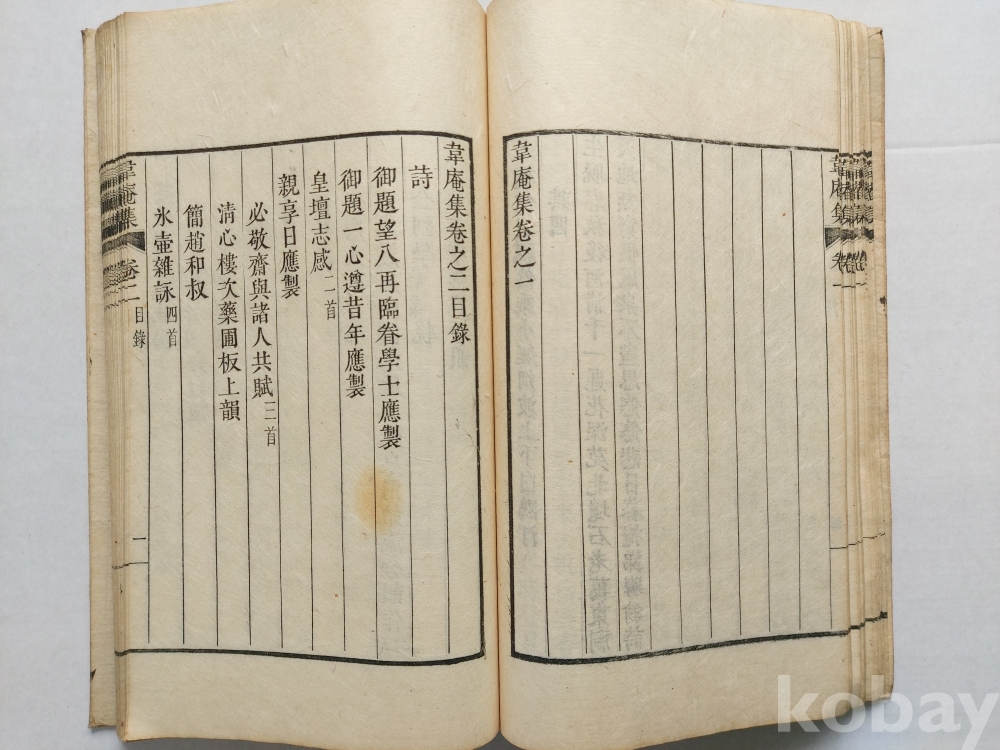 韋庵集卷之一
韋庵集卷之二目錄
詩
御題望八再臨眷學士應製
御題一心遵昔年應製
皇壇志感二首
親享日應製
必敬齋與諸人共賦三首
清心樓次藥圃板上韻
簡趙和叔
氷壺雜詠四首
韋庵集 卷二 目錄 一
韋庵集 卷一
kobay